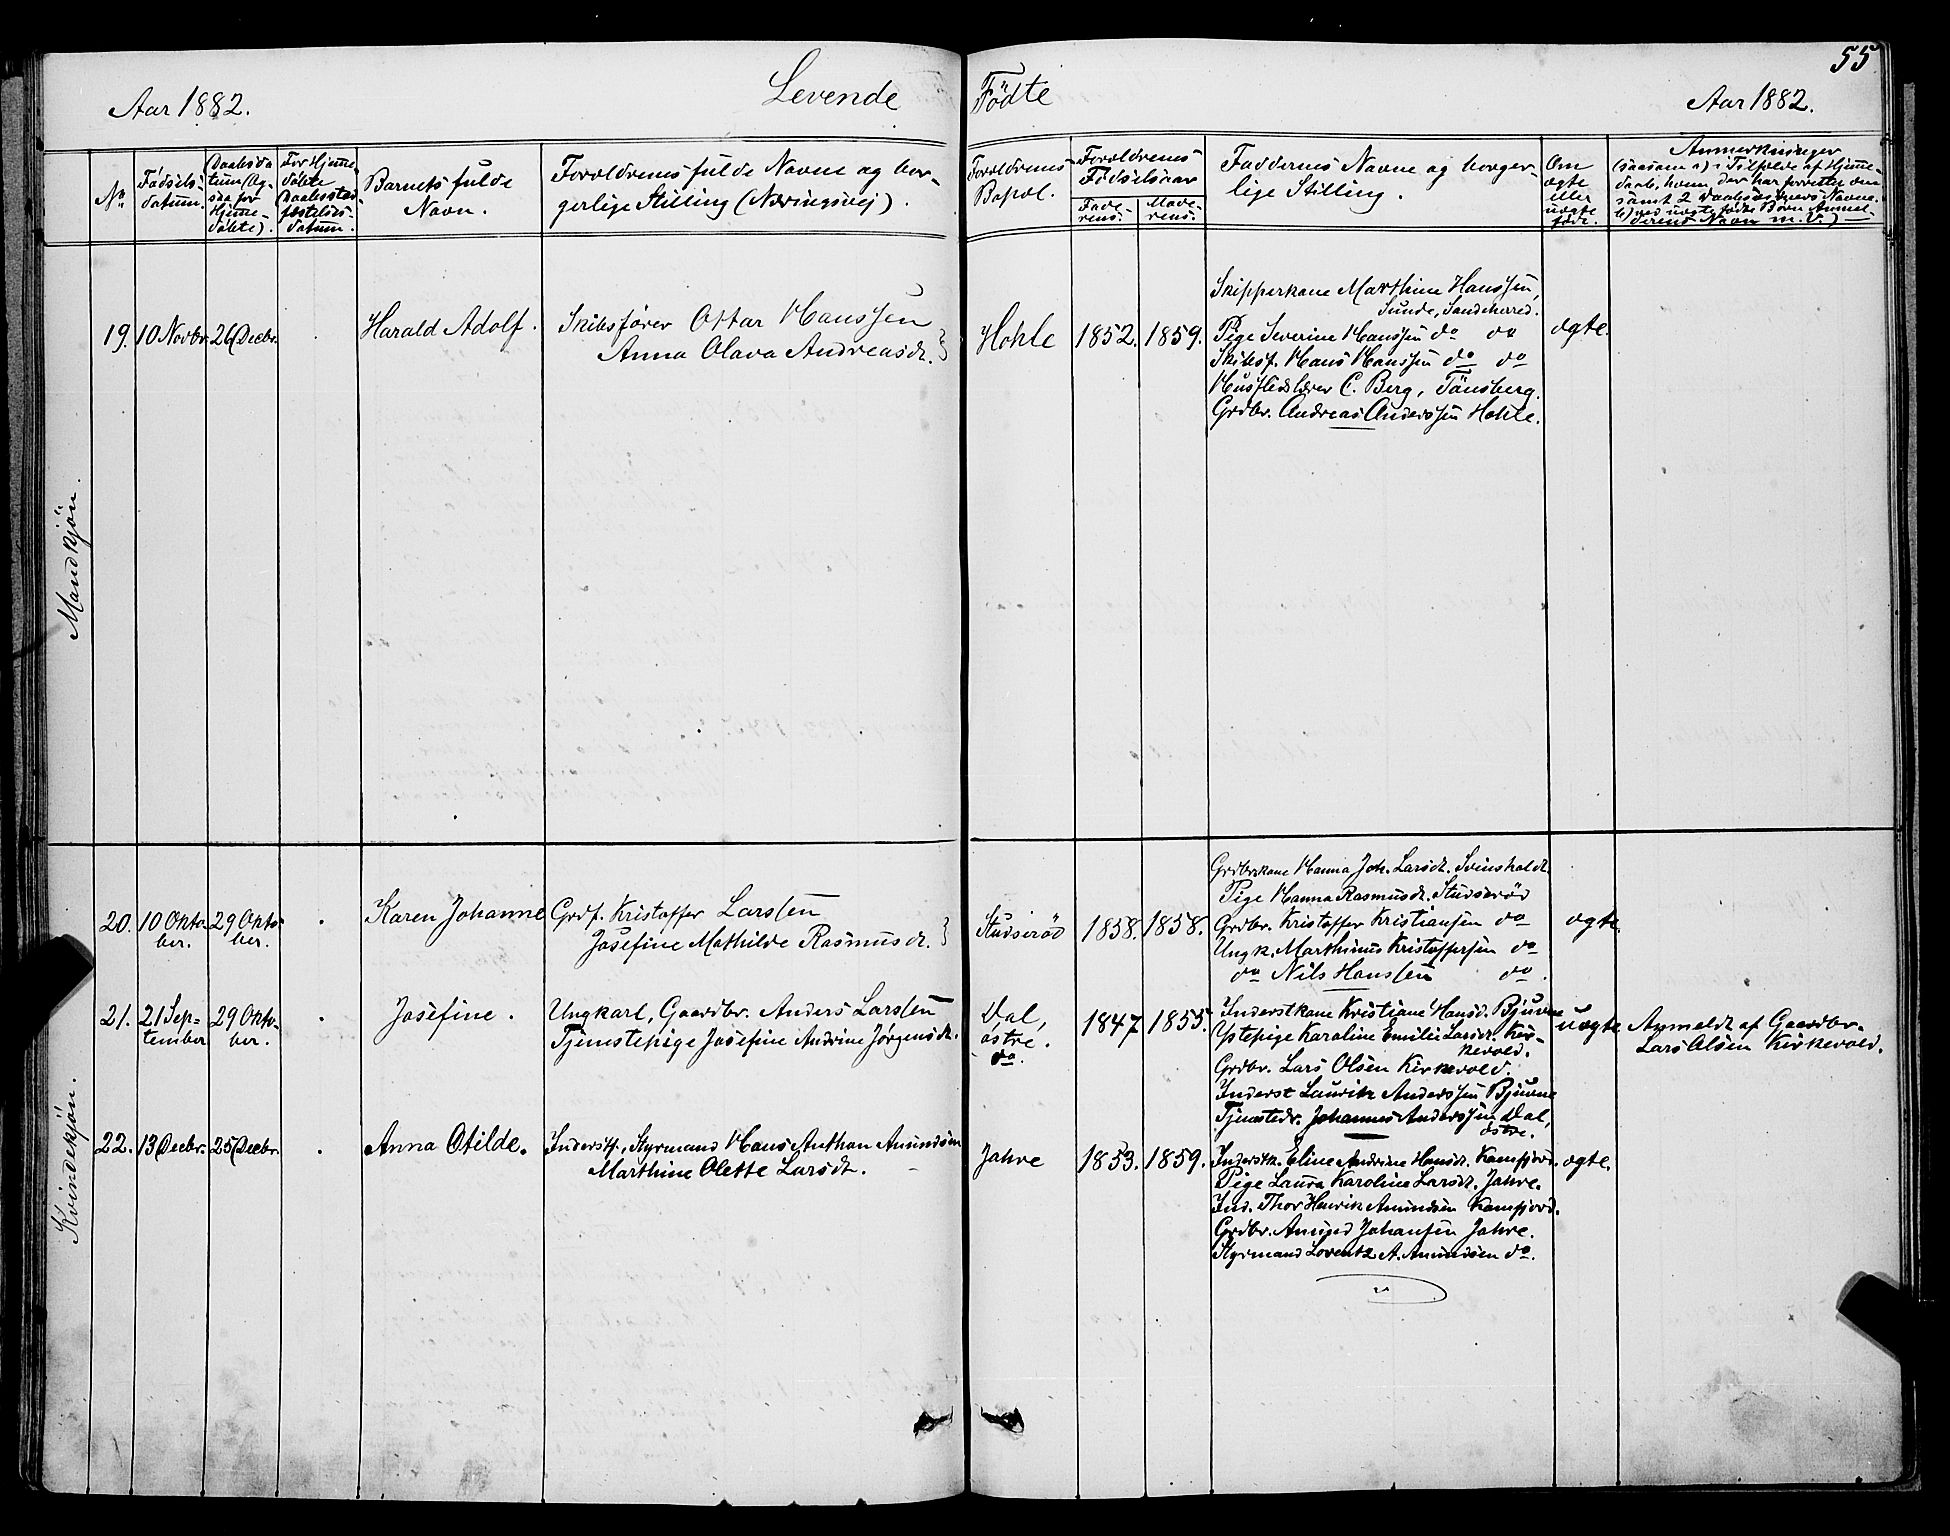 55
Aar 1882.
Levende
Fødte
Aar 1882.
No
Fødsels-
datum.
Daabsda
tum (Og-
saa for
Hjemme-
døbte).
For Hjemme-
døbte
Daabsstad-
fæstelses-
datum.
Barnets fulde
Navn.
Forældrenes fulde Navne og bor-
gerlige Stilling (Næringsvej).
Forældrenes
Bopæl.
Forældrenes
Fødselsaar
Fade-
rens.
Mode-
rens.
Faddernes Navne og borger-
lige Stilling.
Om
ægte
eller
uægte
født.
Anmerkninger
(saasom a) i Tilfælde af Hjemme-
daab, hvem der har forrettet den
samt 2 Daabsvidners Navne.
b) ved uægtefødte Børn Anmel-
derens Navn m.v.)
Mandkjøn.
19.
10 Novbr.
26 Decbr.
Harald Adolf.
Skibsfører Ottar Hanssen
Anna Olava Andreasdt.
Hohle
1852.
1859.
Skipperkone Marthine Hanssen,
Sunde, Sandeherred.
Pige Severine Hanssen do do
Skibsf. Hans Hanssen do do
Husflidslærer C. Berg, Tønsberg.
Grdbr. Andreas Anderssen Hohle.
ægte.
Kvindekjøn.
20.
10 Okto-
ber.
29 Okto-
ber.
Karen Johanne
Grdf. Kristoffer Larssen
Josefine Mathilde Rasmusdt.
Studserød
1858.
1858.
Grdbrkone Hanna Joh. Larsdt. Svinsholdt.
Pige Hanna Rasmusdt. Studserød
Grdbr. Kristoffer Kristiansen do
Ungk. Marthinus Kristoffersen do
do Nils Hanssen do.
ægte.
21.
21 Sep-
tember
29 Okto-
ber.
Josefine.
Ungkarl, Gaardbr. Anders Larssen
Tjenestepige Josefine Andrine Jørgensdt.
Dal,
østre.
do.
1847
1855.
Inderstkone Kristiane Hansd. Bjuvne
Ystepige Karoline Emilie Larsdt. Kir-
kevold.
Grdbr. Lars Olsen Kirkevold.
Inderst Laurits Anderssen Bjuvne
Tjenestedr. Johannes Anderssen Dal,
østre.
uægte
Anmeldt af Gaardbr.
Lars Olsen Kirkevold.
22.
13 Decbr.
25 Decbr.
Anna Otilde.
Inderst, Styrmand Hans Anthon Amundsen
Marthine Olette Larsdt.
Jahre
1853.
1859.
Inderstk. Eline Andrine Hansdt. Kamfjord.
Pige Laura Karoline Larsdt. Jahre.
Ind. Thor Henrik Amundsen Kamfjord.
Grdbr. Amund Johansen Jahre.
Styrmand Lorentz A. Amundsen do.
ægte.